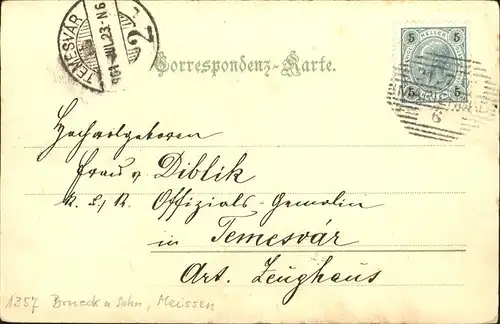 TEMESVÁR
904 JUL 23 N6
Correspondenz-Karte.
HELLER
5 5
5 5
6
Hochwolgeboren
Frau v. Diblik
K. u. K. Offizials-Gemalin
in Temesvár
Art. Zeughaus
1357 Brueck u Sohn, Meissen